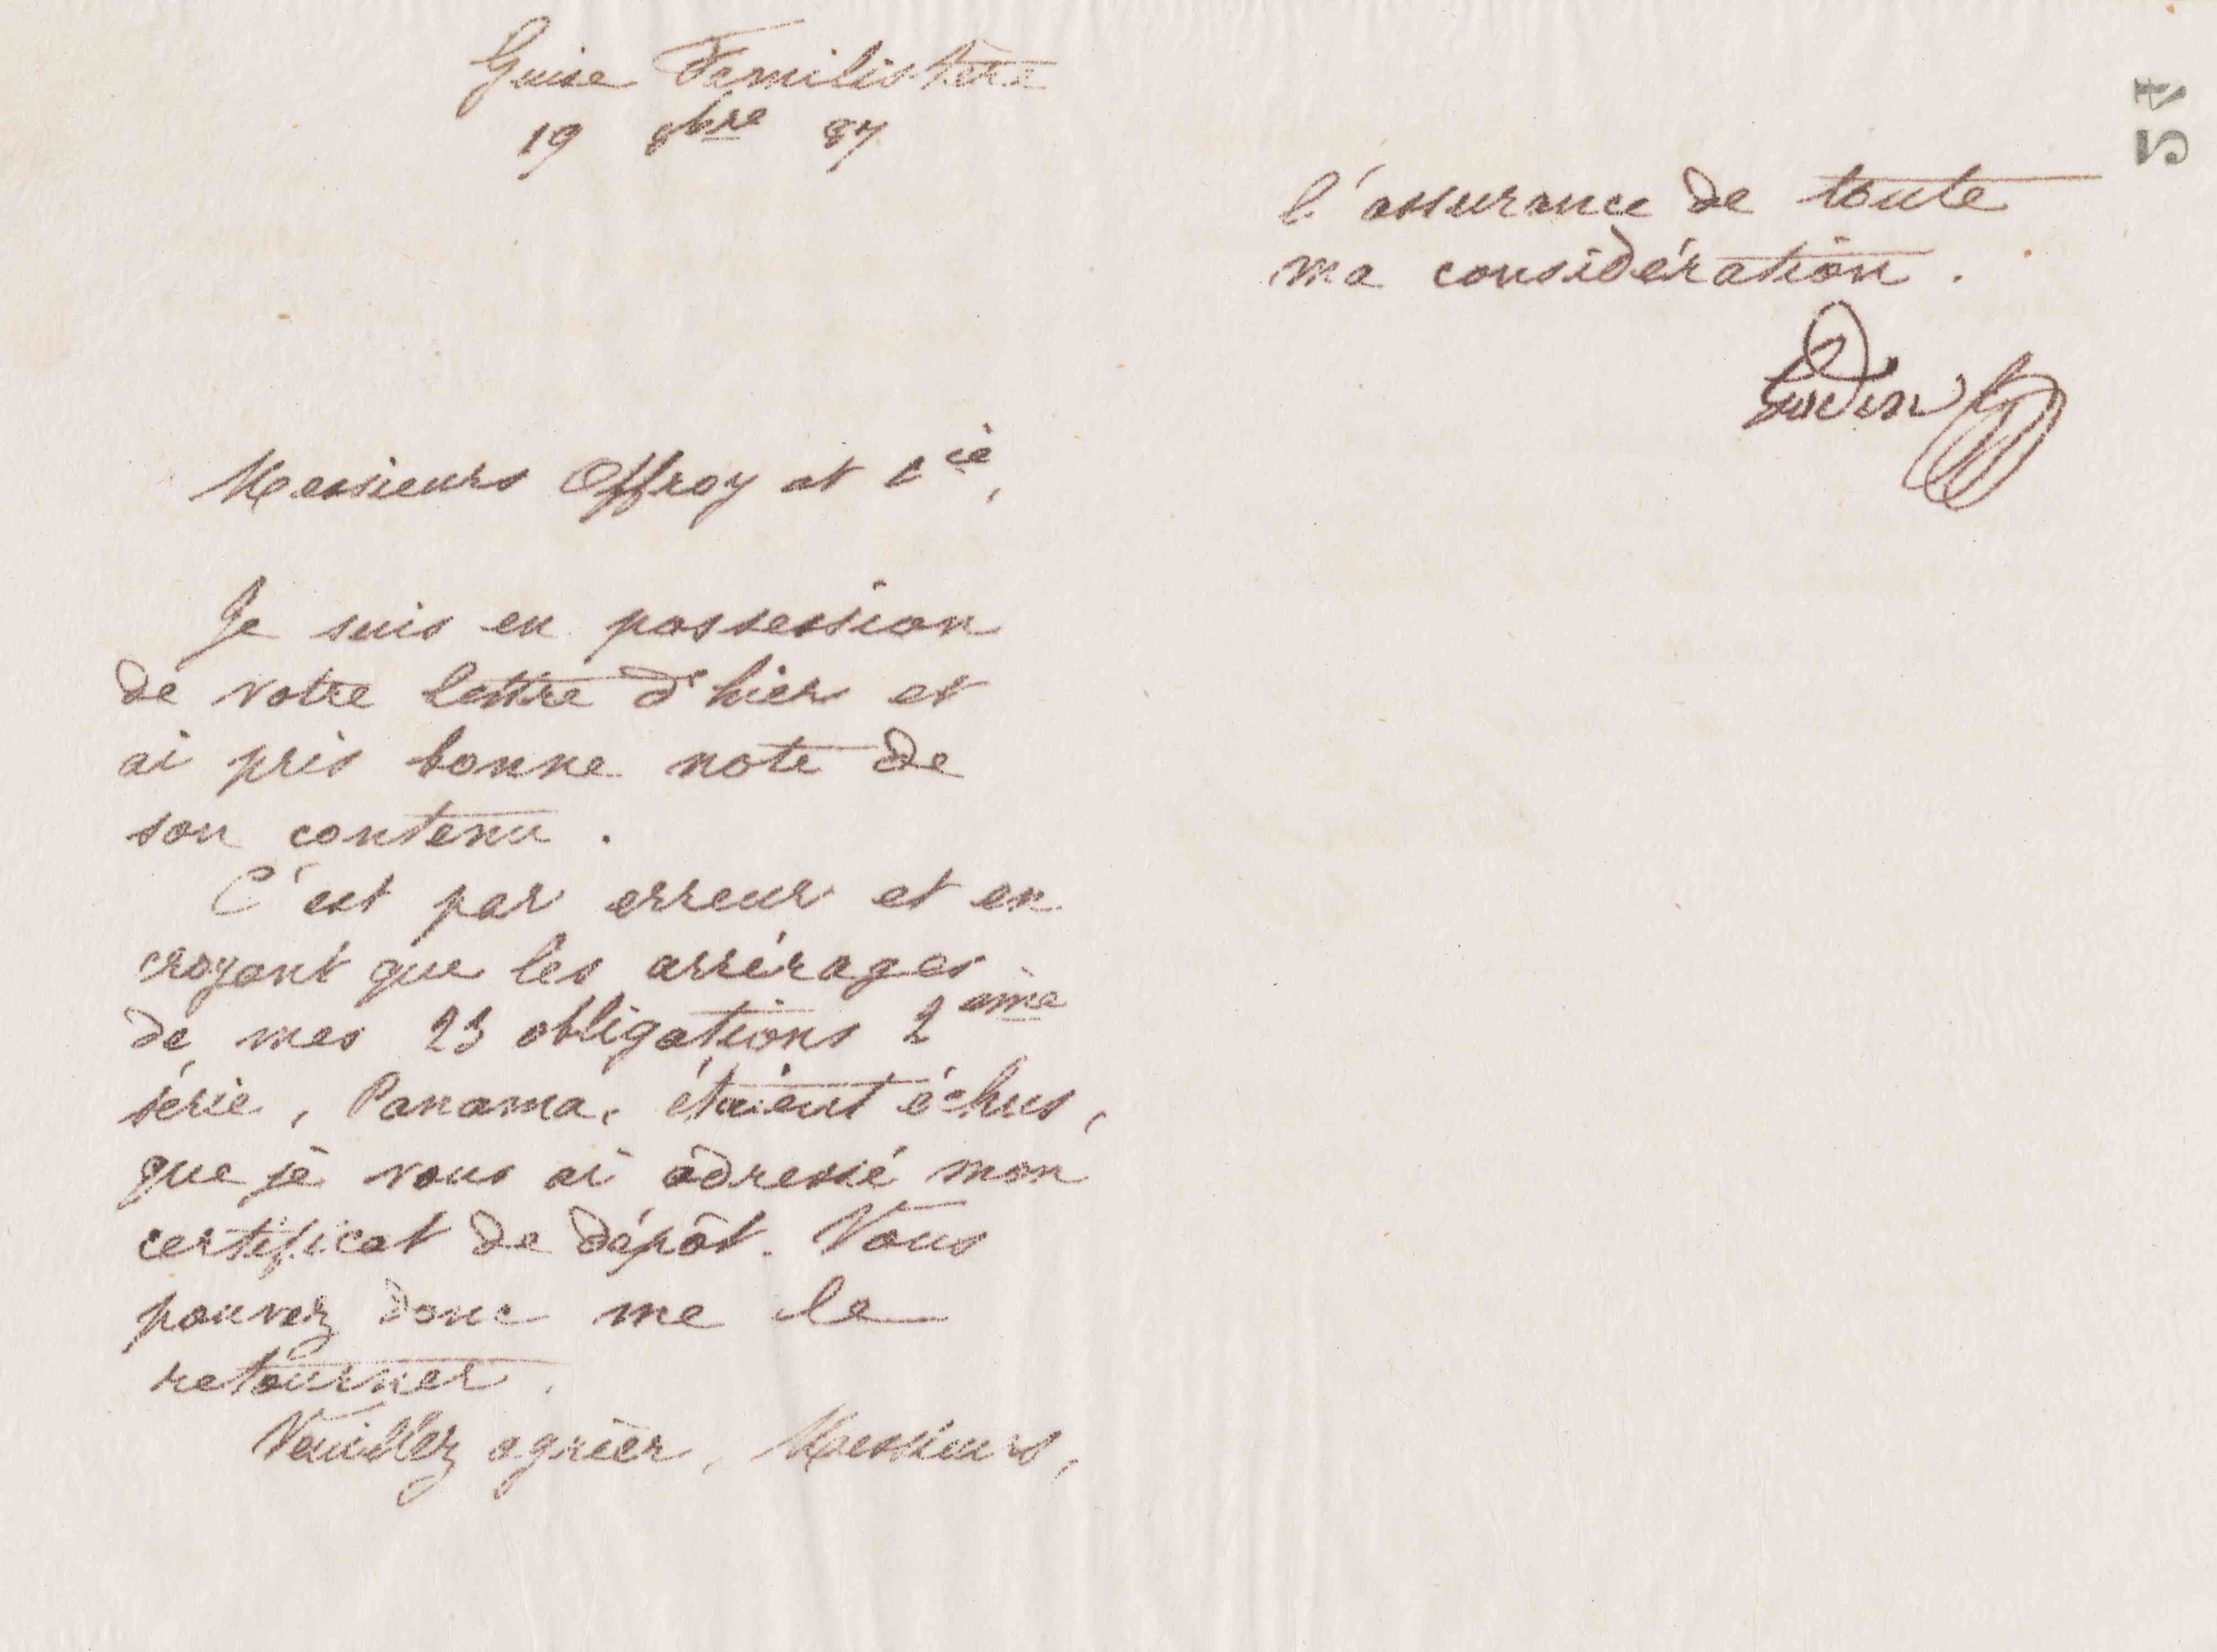 Guise Familistère
19 8bre 87
Messieurs Offroy et Cie,
Je suis en possession
de votre lettre d'hier et
ai pris bonne note de
son contenu.
C'est par erreur et en
croyant que les arrérages
de mes 23 obligations 2ème
série, Panama, étaient échus,
que je vous ai adressé mon
certificat de dépôt. Vous
pouvez donc me le
retourner.
Veuillez agréer, Messieurs,
l'assurance de toute
ma considération.
Godin